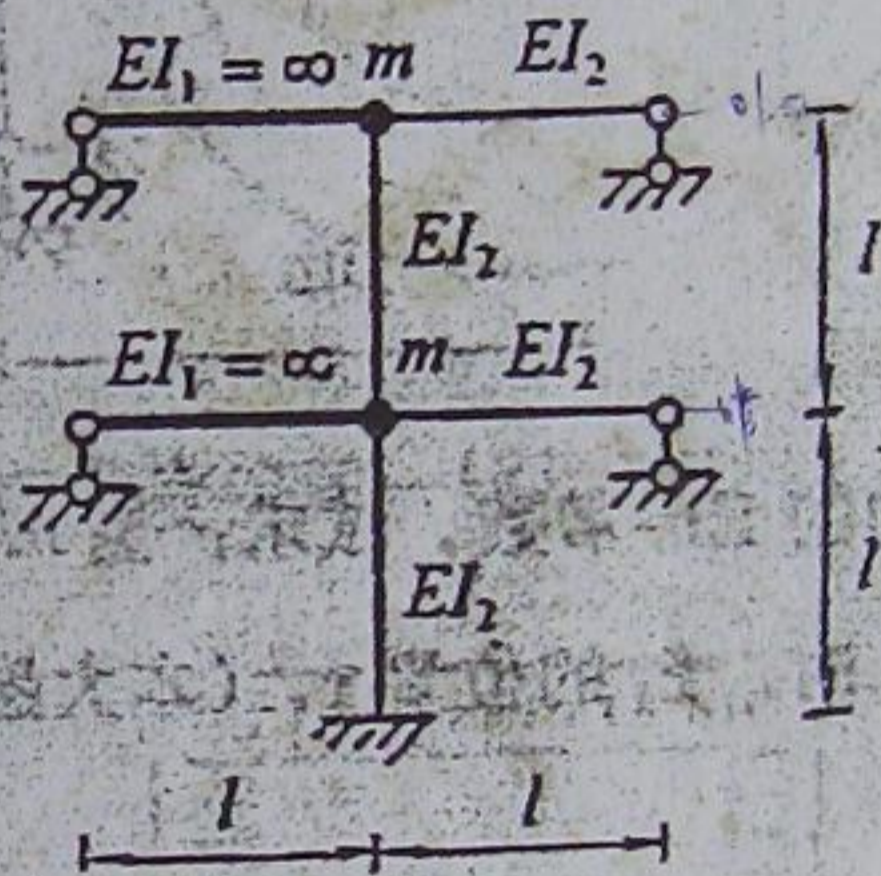 EI₁ = ∞ m EI₂
EI₂
l
EI₁ = ∞ m EI₂
EI₂
l
l l